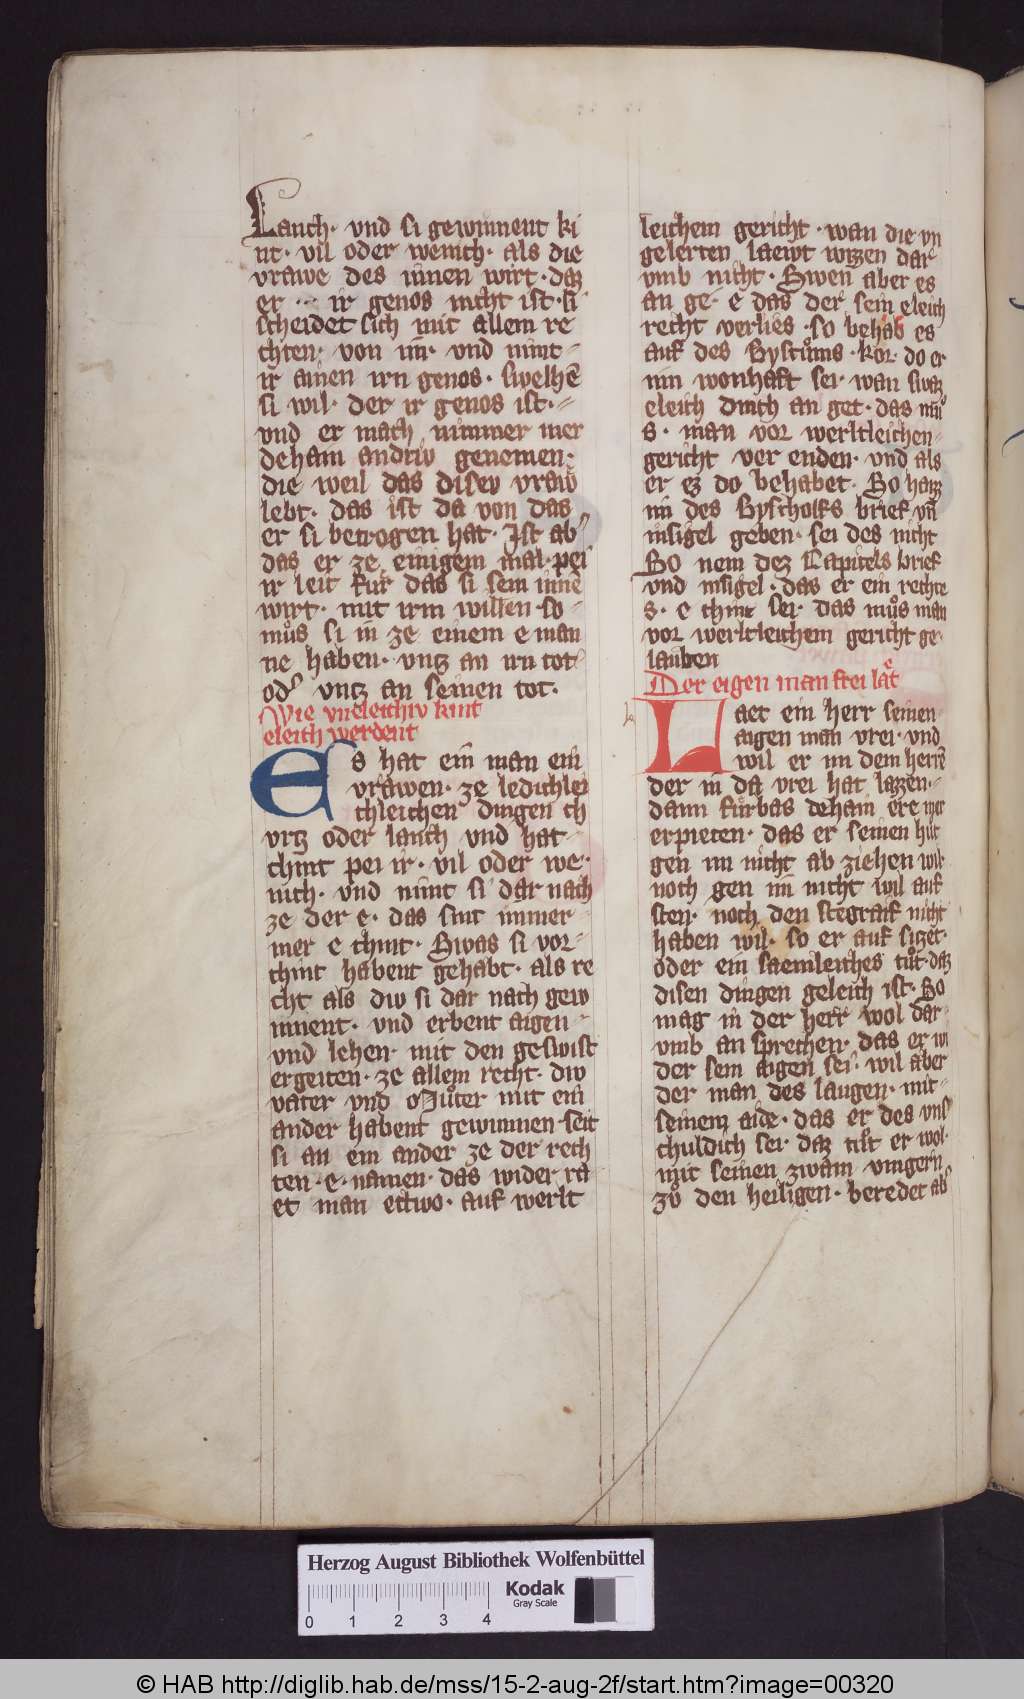 Lanch · vnd si gewinnent ki
nt · vil oder wenich · als die
vrawe des innen wirt · daz
er ir genos nicht ist · si
scheidet sich mit allem re
chten · von im · vnd nimt
ir ainen irn genos · swelhē
si wil · der ir genos ist ·
vnd er mach nimmer mer
dehain andriv genemen ·
die weil das disev vraw
lebt · das ist da von das
er si betrogen hat · Ist ab
das er ze einigem mal · pei
ir leit fur das si sein inne
wirt · mit irm willen · so
muͦs si in ze einem e man
ne haben · vntz an irn tot
od vntz an seinen tot ·
Wie vneleichiv kint
eleich werdent
Es hat ein man ein
vrawen · ze ledichlei
chleichen dingen ch
vrtz oder lanch vnd hat
chint pei ir · vil oder we ·
nich · vnd nimt si dar nach
ze der e · das sint immer
mer e chint · Swas si vor
chint habent gehabt · als re
cht als div si dar nach gew
innent · vnd erbent aigen
vnd lehen · mit den geswist
ergeiten · ze allem recht · div
vater vnd Muͦter mit ein
ander habent gewinnen · seit
si an ein ander ze der rech
ten · e · namen · das wider ra
et man ettwo · auf werlt
leichem gericht · wan die vn
gelerten laewt wizzen dar
vmb nicht · Swen aber es
an ge · e das der sein eleich
recht verlies · so behab es
auf des Bystuͦms · kor · do er
inn wonhaft sei · wan swaz
eleich dinch an get · das muͦ
s · man vor werltleichen
gericht ver enden · vnd als
er ez do behabet · So haizz
im des Byscholfs brief vn̄
insigel geben · sei des nicht
So nem dez Capitels brief
vnd insigel · das er ein rechte
s · e chint sei · das muͦs man
vor werltleichem gericht ge
lauben
Der eigen man frei laͤt
Laet ein herr seinen
aigen man vrei · vnd
wil er im dem herrē
der in da vrei hat lazzen ·
dann furbas dehain ere
erpieten · das er seinen huͦt
gen im nicht ab ziehen wil
noch gen im nicht wil auf
sten · noch den stegraif nicht
haben wil · so er auf sizet ·
oder ein saemleiches tuͦt · daz
disen dingen geleich ist · So
mag in der herr wol dar
vmb an sprechen · das er wi
der sein aigen sei · wil aber
der man des laugen · mit
seinem aide · das er des vns
chuldich sei · daz tut er wol ·
mit seinen zwain vingern
zuͦ den heiligen · beredet ab
Herzog August Bibliothek Wolfenbüttel
0 1 2 3 4
Kodak
Gray Scale
© HAB http://diglib.hab.de/mss/15-2-aug-2f/start.htm?image=00320